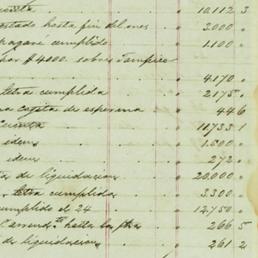 cuenta " 10,112 3
estado hasta fin del mes " 3.000 "
pagare cumplido " 1.100 "
por $4000. sobre Tampico
" 4.170 "
letra cumplida " 2175 "
una cajeta de esperma " 44 6
Cuenta " 11,733 1
idem " 1.500 "
idem " 272 "
de liquidacion " 20,000 "
letra cumplida " 3300 "
cumplido el 24 " 12,750 "
hasta " 266 5
de liquidacion " 261 2